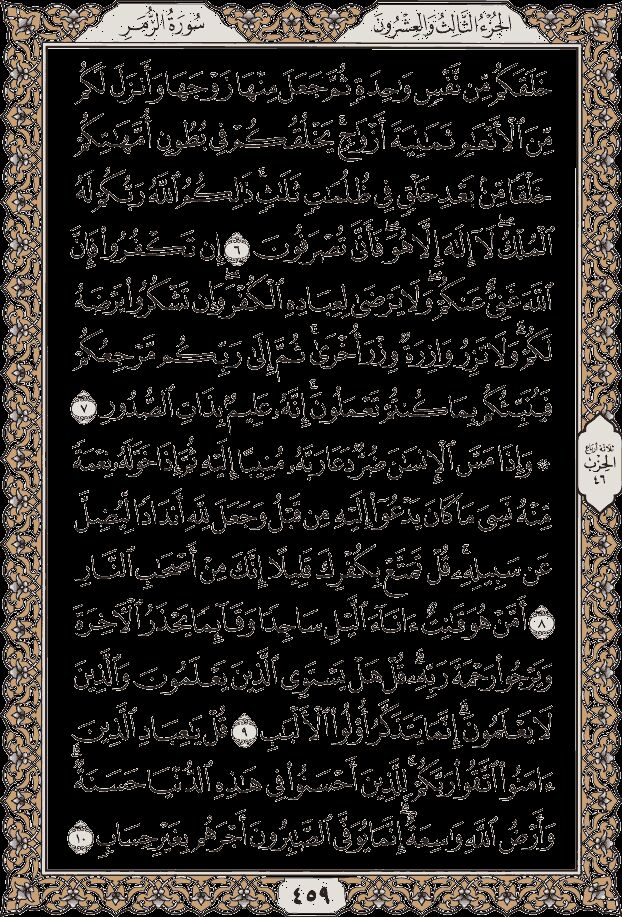 سُورَةُ الزُّمَرِ
الجُزْءُ الثَّالِثُ وَالعِشْرُونَ
خَلَقَكُم مِّن نَّفْسٍ وَٰحِدَةٍ ثُمَّ جَعَلَ مِنْهَا زَوْجَهَا وَأَنزَلَ لَكُم
مِّنَ ٱلْأَنْعَٰمِ ثَمَٰنِيَةَ أَزْوَٰجٍۚ يَخْلُقُكُمْ فِى بُطُونِ أُمَّهَٰتِكُمْ
خَلْقًا مِّنۢ بَعْدِ خَلْقٍ فِى ظُلُمَٰتٍ ثَلَٰثٍۚ ذَٰلِكُمُ ٱللَّهُ رَبُّكُمْ لَهُ
ٱلْمُلْكُۖ لَآ إِلَٰهَ إِلَّا هُوَۖ فَأَنَّىٰ تُصْرَفُونَ ٦ إِن تَكْفُرُوا۟ فَإِنَّ
ٱللَّهَ غَنِىٌّ عَنكُمْۖ وَلَا يَرْضَىٰ لِعِبَادِهِ ٱلْكُفْرَۖ وَإِن تَشْكُرُوا۟ يَرْضَهُ
لَكُمْۗ وَلَا تَزِرُ وَازِرَةٌ وِزْرَ أُخْرَىٰۗ ثُمَّ إِلَىٰ رَبِّكُم مَّرْجِعُكُمْ
فَيُنَبِّئُكُم بِمَا كُنتُمْ تَعْمَلُونَۚ إِنَّهُۥ عَلِيمٌۢ بِذَاتِ ٱلصُّدُورِ ٧
۞ وَإِذَا مَسَّ ٱلْإِنسَٰنَ ضُرٌّ دَعَا رَبَّهُۥ مُنِيبًا إِلَيْهِ ثُمَّ إِذَا خَوَّلَهُۥ نِعْمَةً
مِّنْهُ نَسِىَ مَا كَانَ يَدْعُوٓا۟ إِلَيْهِ مِن قَبْلُ وَجَعَلَ لِلَّهِ أَندَادًا لِّيُضِلَّ
عَن سَبِيلِهِۦۚ قُلْ تَمَتَّعْ بِكُفْرِكَ قَلِيلًا إِنَّكَ مِنْ أَصْحَٰبِ ٱلنَّارِ
٨ أَمَّنْ هُوَ قَٰنِتٌ ءَانَآءَ ٱلَّيْلِ سَاجِدًا وَقَآئِمًا يَحْذَرُ ٱلْءَاخِرَةَ
وَيَرْجُوا۟ رَحْمَةَ رَبِّهِۦۗ قُلْ هَلْ يَسْتَوِى ٱلَّذِينَ يَعْلَمُونَ وَٱلَّذِينَ
لَا يَعْلَمُونَۗ إِنَّمَا يَتَذَكَّرُ أُو۟لُوا۟ ٱلْأَلْبَٰبِ ٩ قُلْ يَٰعِبَادِ ٱلَّذِينَ
ءَامَنُوا۟ ٱتَّقُوا۟ رَبَّكُمْۚ لِلَّذِينَ أَحْسَنُوا۟ فِى هَٰذِهِ ٱلدُّنْيَا حَسَنَةٌۗ
وَأَرْضُ ٱللَّهِ وَٰسِعَةٌۗ إِنَّمَا يُوَفَّى ٱلصَّٰبِرُونَ أَجْرَهُم بِغَيْرِ حِسَابٍ ١٠
ثلاثة أرباع
الحزب
٤٦
٤٥٩